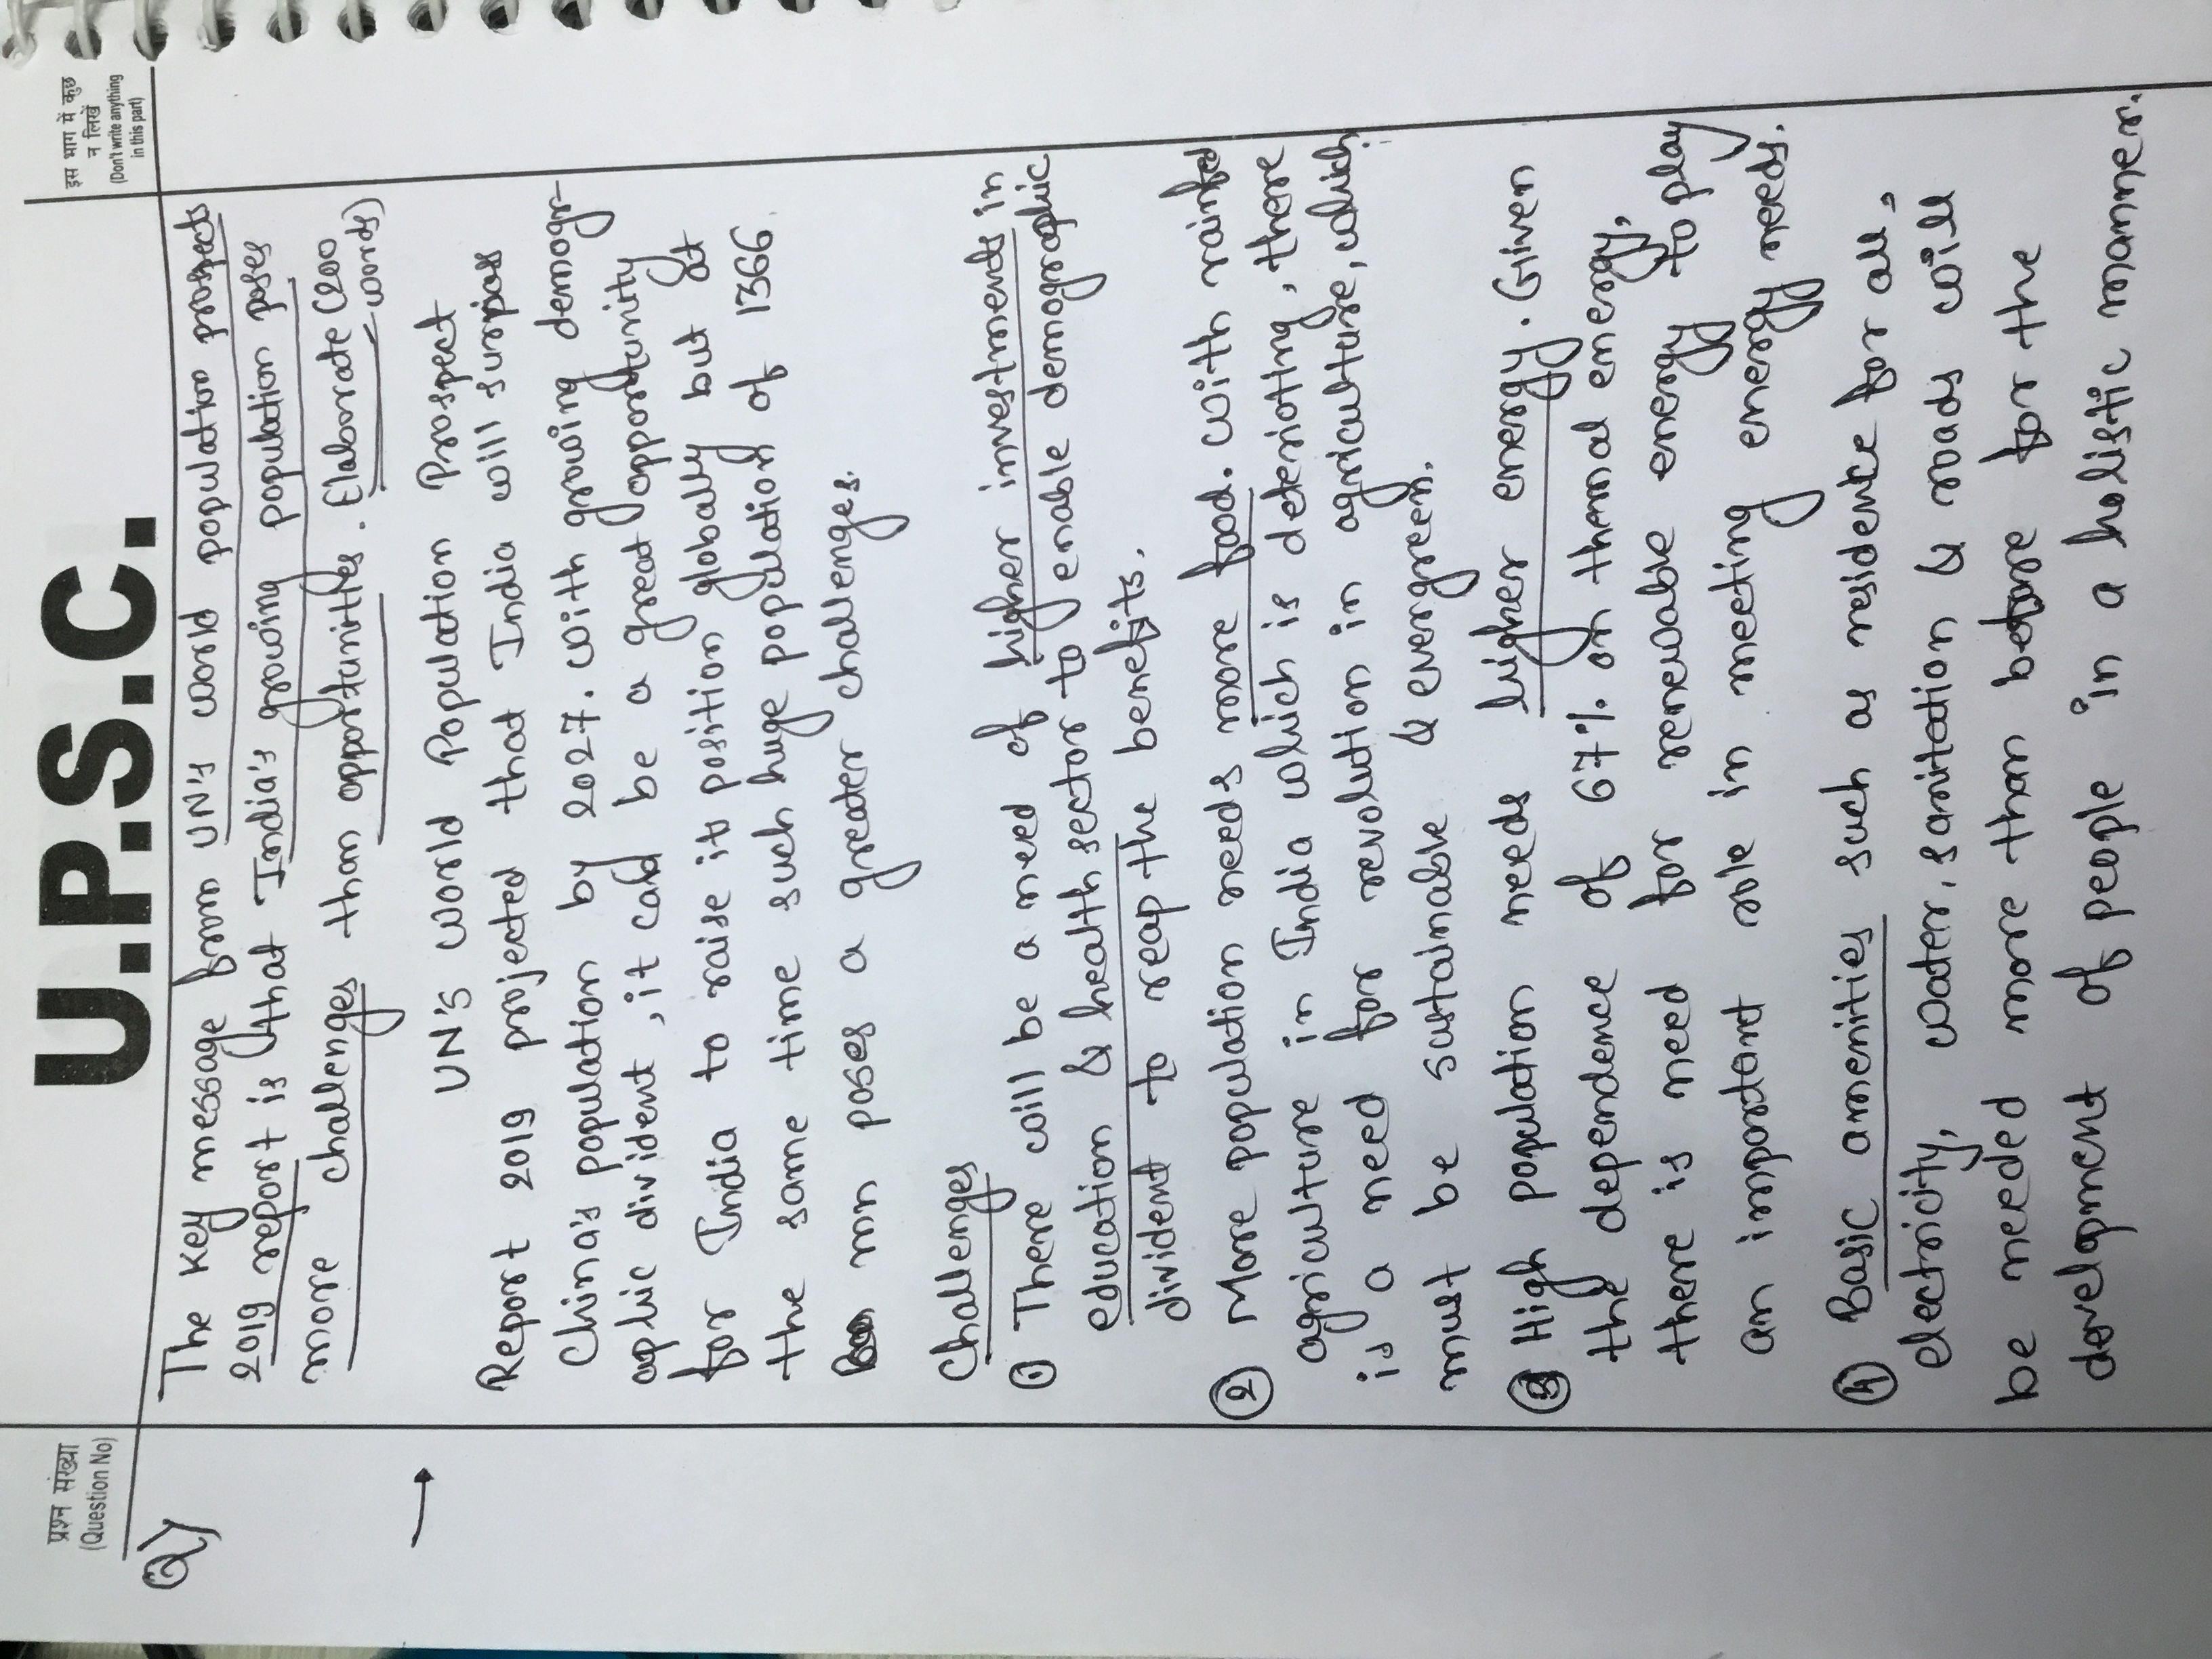 U.P.S.C.
प्रश्न संख्या
(Question No)
इस भाग में कुछ
न लिखें
(Don't write anything
in this part)
Q) The key message from UN's world population prospects
2019 report is that India's growing population poses
more challenges than opportunities. Elaborate (200
words)
→ UN's World Population Prospect
Report 2019 projected that India will surpass
China's population by 2027. With growing demogr-
aphic divident, it could be a great opportunity
for India to raise its position globally but at
the same time such huge population of 1366
mn poses a greater challenges.
Challenges
① There will be a need of higher investments in
education & health sector to enable demographic
divident to reap the benefits.
② More population needs more food. With rainfed
agriculture in India which is deterioting, there
is a need for revolution in agriculture, which
must be sustainable & evergreen.
③ High population needs higher energy. Given
the dependence of 67% on thermal energy,
there is need for renewable energy to play
an important role in meeting energy needs.
④ Basic amenities such as residence for all,
electricity, water, sanitation & roads will
be needed more than before for the
development of people in a holistic manner.